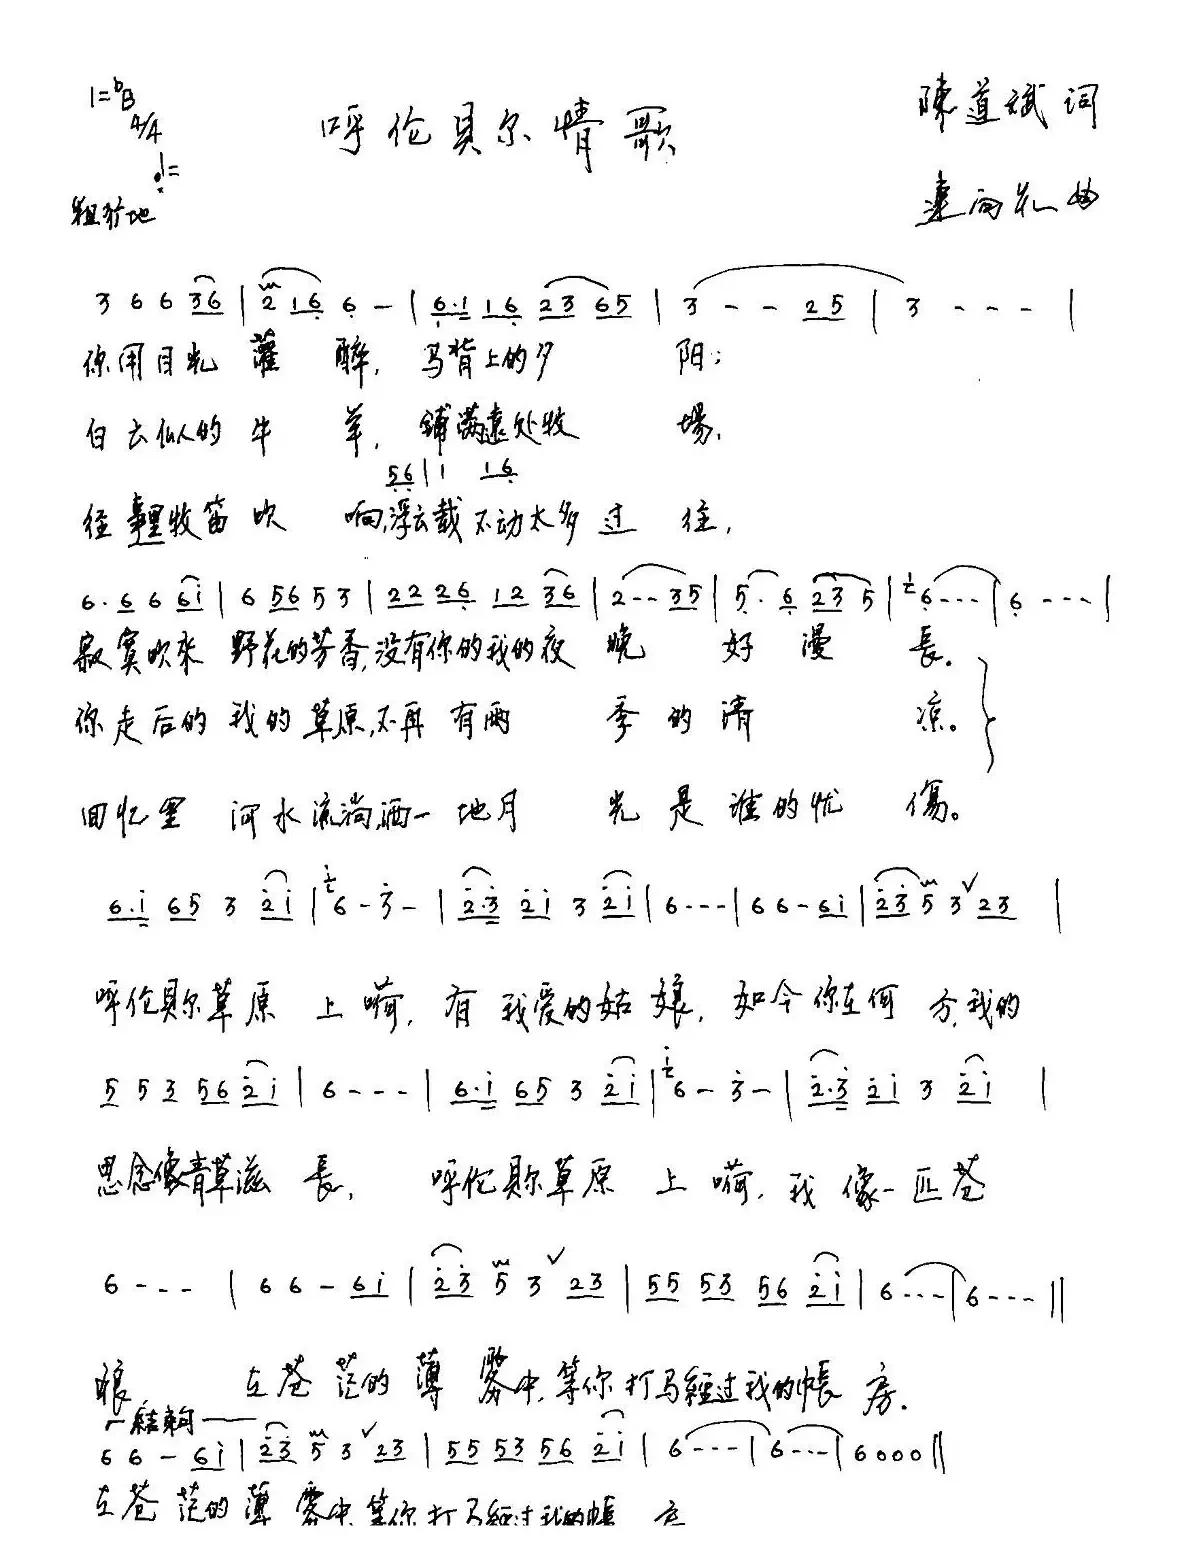 1=ᵇB 4/4
呼伦贝尔情歌
陳道斌词
曲
粗犷地
3 6 6 36 | 2 16 6 - | 6·1 16 23 65 | 3 - - 25 | 3 - - - |
你用目光灌醉,马背上的夕阳;
白云似的牛羊,铺满远处牧場,
56 | 1 16
往事里牧笛吹响,浮云载不动太多过往,
6·6 6 6i | 6 56 5 3 | 22 26 12 36 | 2 - - 35 | 5·6 23 5 | 6 - - - | 6 - - - |
寂寞吹来野花的芳香,没有你的我的夜晚好漫長。
你走后的我的草原,不再有两季的清凉。
回忆里河水流淌,洒一地月光是谁的忧傷。
6·i 65 3 2i | 6 - 3 - | 2·3 2i 3 2i | 6 - - - | 6 6 - 6i | 23 5 3 23 |
呼伦贝尔草原上嗬,有我爱的姑娘,如今你在何方,我的
5 5 3 56 2i | 6 - - - | 6·i 65 3 2i | 6 - 3 - | 2·3 2i 3 2i |
思念像青草滋長,呼伦贝尔草原上嗬,我像一匹苍
6 - - - | 6 6 - 6i | 23 5 3 23 | 55 53 56 2i | 6 - - - | 6 - - - ||
狼,在苍茫的薄雾中,等你打马經过我的帳房.
結束句
6 6 - 6i | 23 5 3 23 | 55 53 56 2i | 6 - - - | 6 - - - | 6 0 0 0 ||
在苍茫的薄雾中,等你打马經过我的帳房